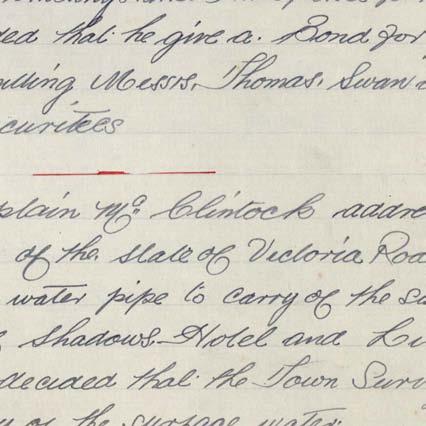 ded that he give a Bond for
Messrs. Thomas, Swan
curitees
ptain Mc Clintock addre
of the state of Victoria Roa
water pipe to carry of the su
Shadows Hotel and Lu
decided that the Town Surv
of the surface water.